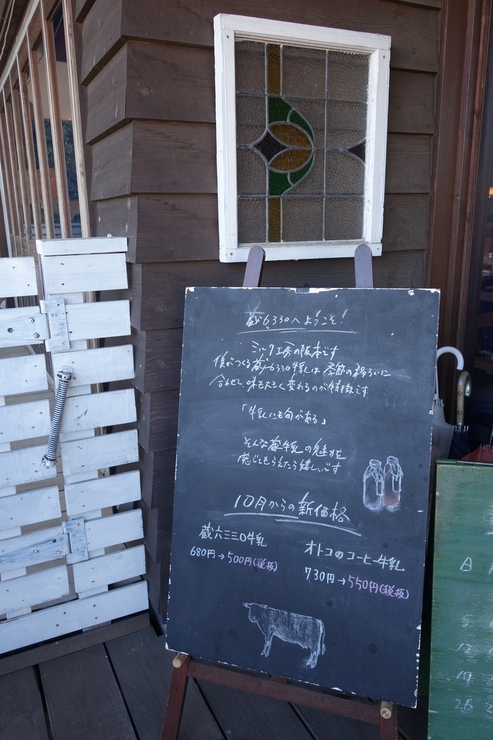 蔵6330へようこそ!
ミルク工房の阪本です
僕がつくる蔵6330牛乳は 季節の移ろいに
合わせて味も大きく変わるのが特徴です
「牛乳にも旬がある」
そんな蔵牛乳の魅力を
感じてもらえたら嬉しいです
10月からの新価格
蔵六三三〇牛乳
680円→500円(税抜)
オトコのコーヒー牛乳
730円→550円(税抜)
5
12
19
26